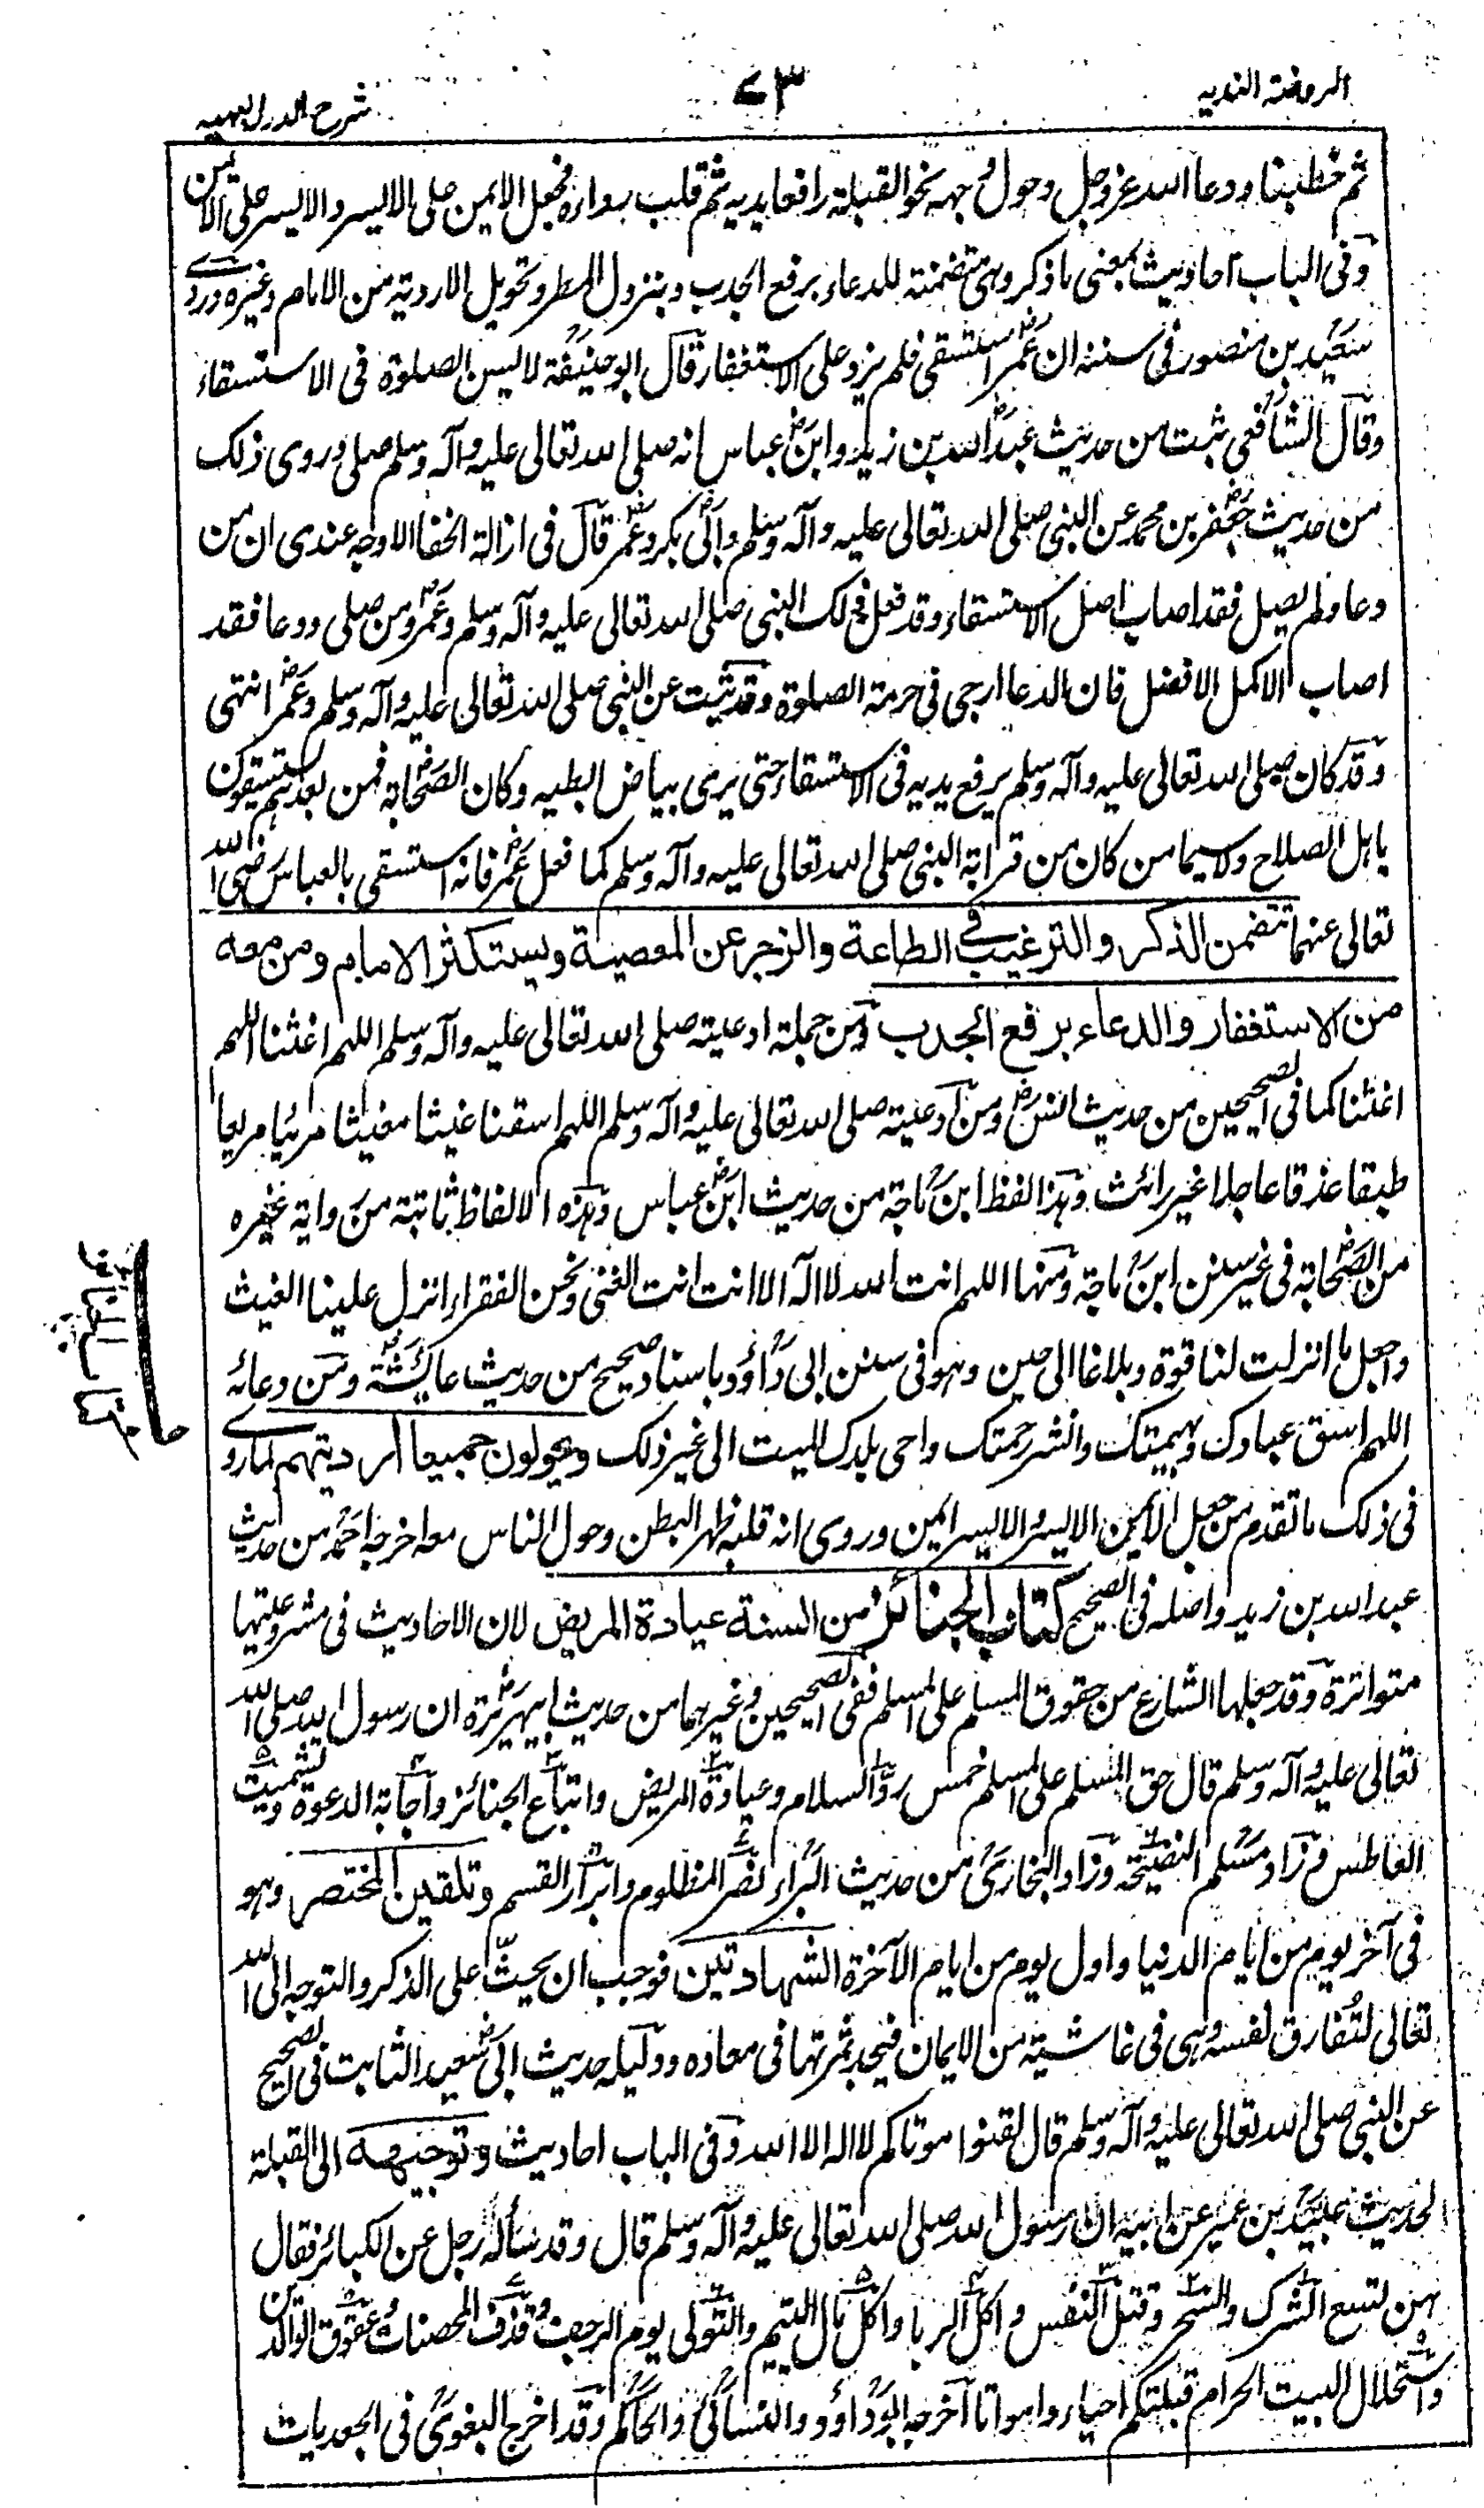 الروضة الندية
٧٣
شرح الدرر البهية
ثم خطبنا ودعا الله عزوجل وحول وجهه نحو القبلة رافعا يديه ثم قلب رداءه فجعل الايمن على الايسر والايسر على الايمن
وفى الباب احاديث بمعنى ما ذكر وهى متضمنة للدعاء برفع الجدب وبنزول المطر وتحويل الاردية من الامام وغيره وروى
سعيد بن منصور فى سننه ان عمر استسقى فلم يزد على الاستغفار قال ابو حنيفة لا ليس الصلوة فى الاستسقاء
وقال الشافعى ثبت من حديث عبد الله بن زيد وابن عباس انه صلى الله تعالى عليه وآله وسلم صلى وروى ذلك
من حديث جعفر بن محمد عن النبى صلى الله تعالى عليه وآله وسلم وابى بكر وعمر قال فى ازالة الخفا الاوجه عندى ان من
دعا ولم يصل فقد اصاب اصل الاستسقاء وقد فعل ذلك النبى صلى الله تعالى عليه وآله وسلم وعمر ومن صلى ودعا فقد
اصاب الاكمل الافضل فان الدعا ارجى فى حرمة الصلوة وقد ثبت عن النبى صلى الله تعالى عليه وآله وسلم وعمر انتهى
وقد كان صلى الله تعالى عليه وآله وسلم يرفع يديه فى الاستسقاء حتى يرى بياض ابطيه وكان الصحابة فمن بعدهم يستسقون
باهل الصلاح ولاسيما من كان من قرابة النبى صلى الله تعالى عليه وآله وسلم كما فعل عمر فانه استسقى بالعباس رضى الله
تعالى عنهما تتضمن الذكر والترغيب فى الطاعة والزجر عن المعصية ويستكثر الامام ومن معه
من الاستغفار والدعاء برفع الجدب ومن جملة ادعيته صلى الله تعالى عليه وآله وسلم اللهم اغثنا اللهم
اغثنا كما فى الصحيحين من حديث انس ومن ادعيته صلى الله تعالى عليه وآله وسلم اللهم اسقنا غيثا مغيثا مريئا مريعا
طبقا غدقا عاجلا غير رائث وهذا لفظ ابن ماجة من حديث ابن عباس وهذه الالفاظ ثابتة من رواية غيره
من الصحابة فى غير سنن ابن ماجة ومنها اللهم انت الله لا اله الا انت انت الغنى ونحن الفقراء انزل علينا الغيث
واجعل ما انزلت لنا قوة وبلاغا الى حين وهو فى سنن ابى داؤد باسناد صحيح من حديث عائشة ومن دعائه
اللهم اسق عبادك وبهيمتك وانشر رحمتك واحى بلدك الميت الى غير ذلك ويحولون جميعا ارديتهم لما روى
فى ذلك ما تقدم من جعل الايمن الايسر والايسر ايمن وروى انه قلبه ظهر البطن وحول الناس معه اخرجه احمد من حديث
عبد الله بن زيد واصله فى الصحيح كتاب الجنائز من السنة عيادة المريض لان الاحاديث فى مشروعيتها
متواترة وقد جعلها الشارع من حقوق المسلم على المسلم ففى الصحيحين وغيرهما من حديث ابيهريرة ان رسول الله صلى الله
تعالى عليه وآله وسلم قال حق المسلم على المسلم خمس رد السلام وعيادة المريض واتباع الجنائز واجابة الدعوة وتشميت
العاطس وزاد مسلم النصيحة وزاد البخارى من حديث البراء نصر المظلوم وابرار القسم وتلقين المحتضر وهو
فى آخر يوم من ايام الدنيا واول يوم من ايام الآخرة الشهادتين فوجب ان يحث على الذكر والتوجه الى الله
تعالى لتفارق نفسه وهى فى غاشية من الايمان فيجد ثمرتها فى معاده ودليله حديث ابى سعيد الثابت فى الصحيح
عن النبى صلى الله تعالى عليه وآله وسلم قال لقنوا موتاكم لا اله الا الله وفى الباب احاديث وتوجيهه الى القبلة
لحديث عبيد بن عمير عن ابيه ان رسول الله صلى الله تعالى عليه وآله وسلم قال وقد سأله رجل عن الكبائر فقال
هن تسع الشرك والسحر وقتل النفس واكل الربا واكل مال اليتيم والتولى يوم الزحف وقذف المحصنات وعقوق الوالدين
واستحلال البيت الحرام قبلتكم احياء وامواتا اخرجه ابوداؤد والنسائى والحاكم وقد اخرج البغوى فى الجعديات
كتاب الجنائز